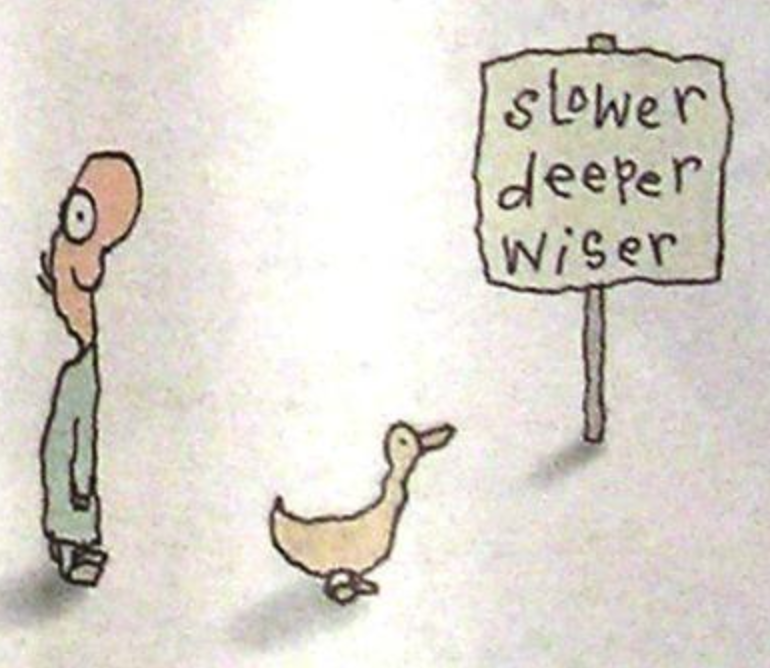 slower
deeper
wiser